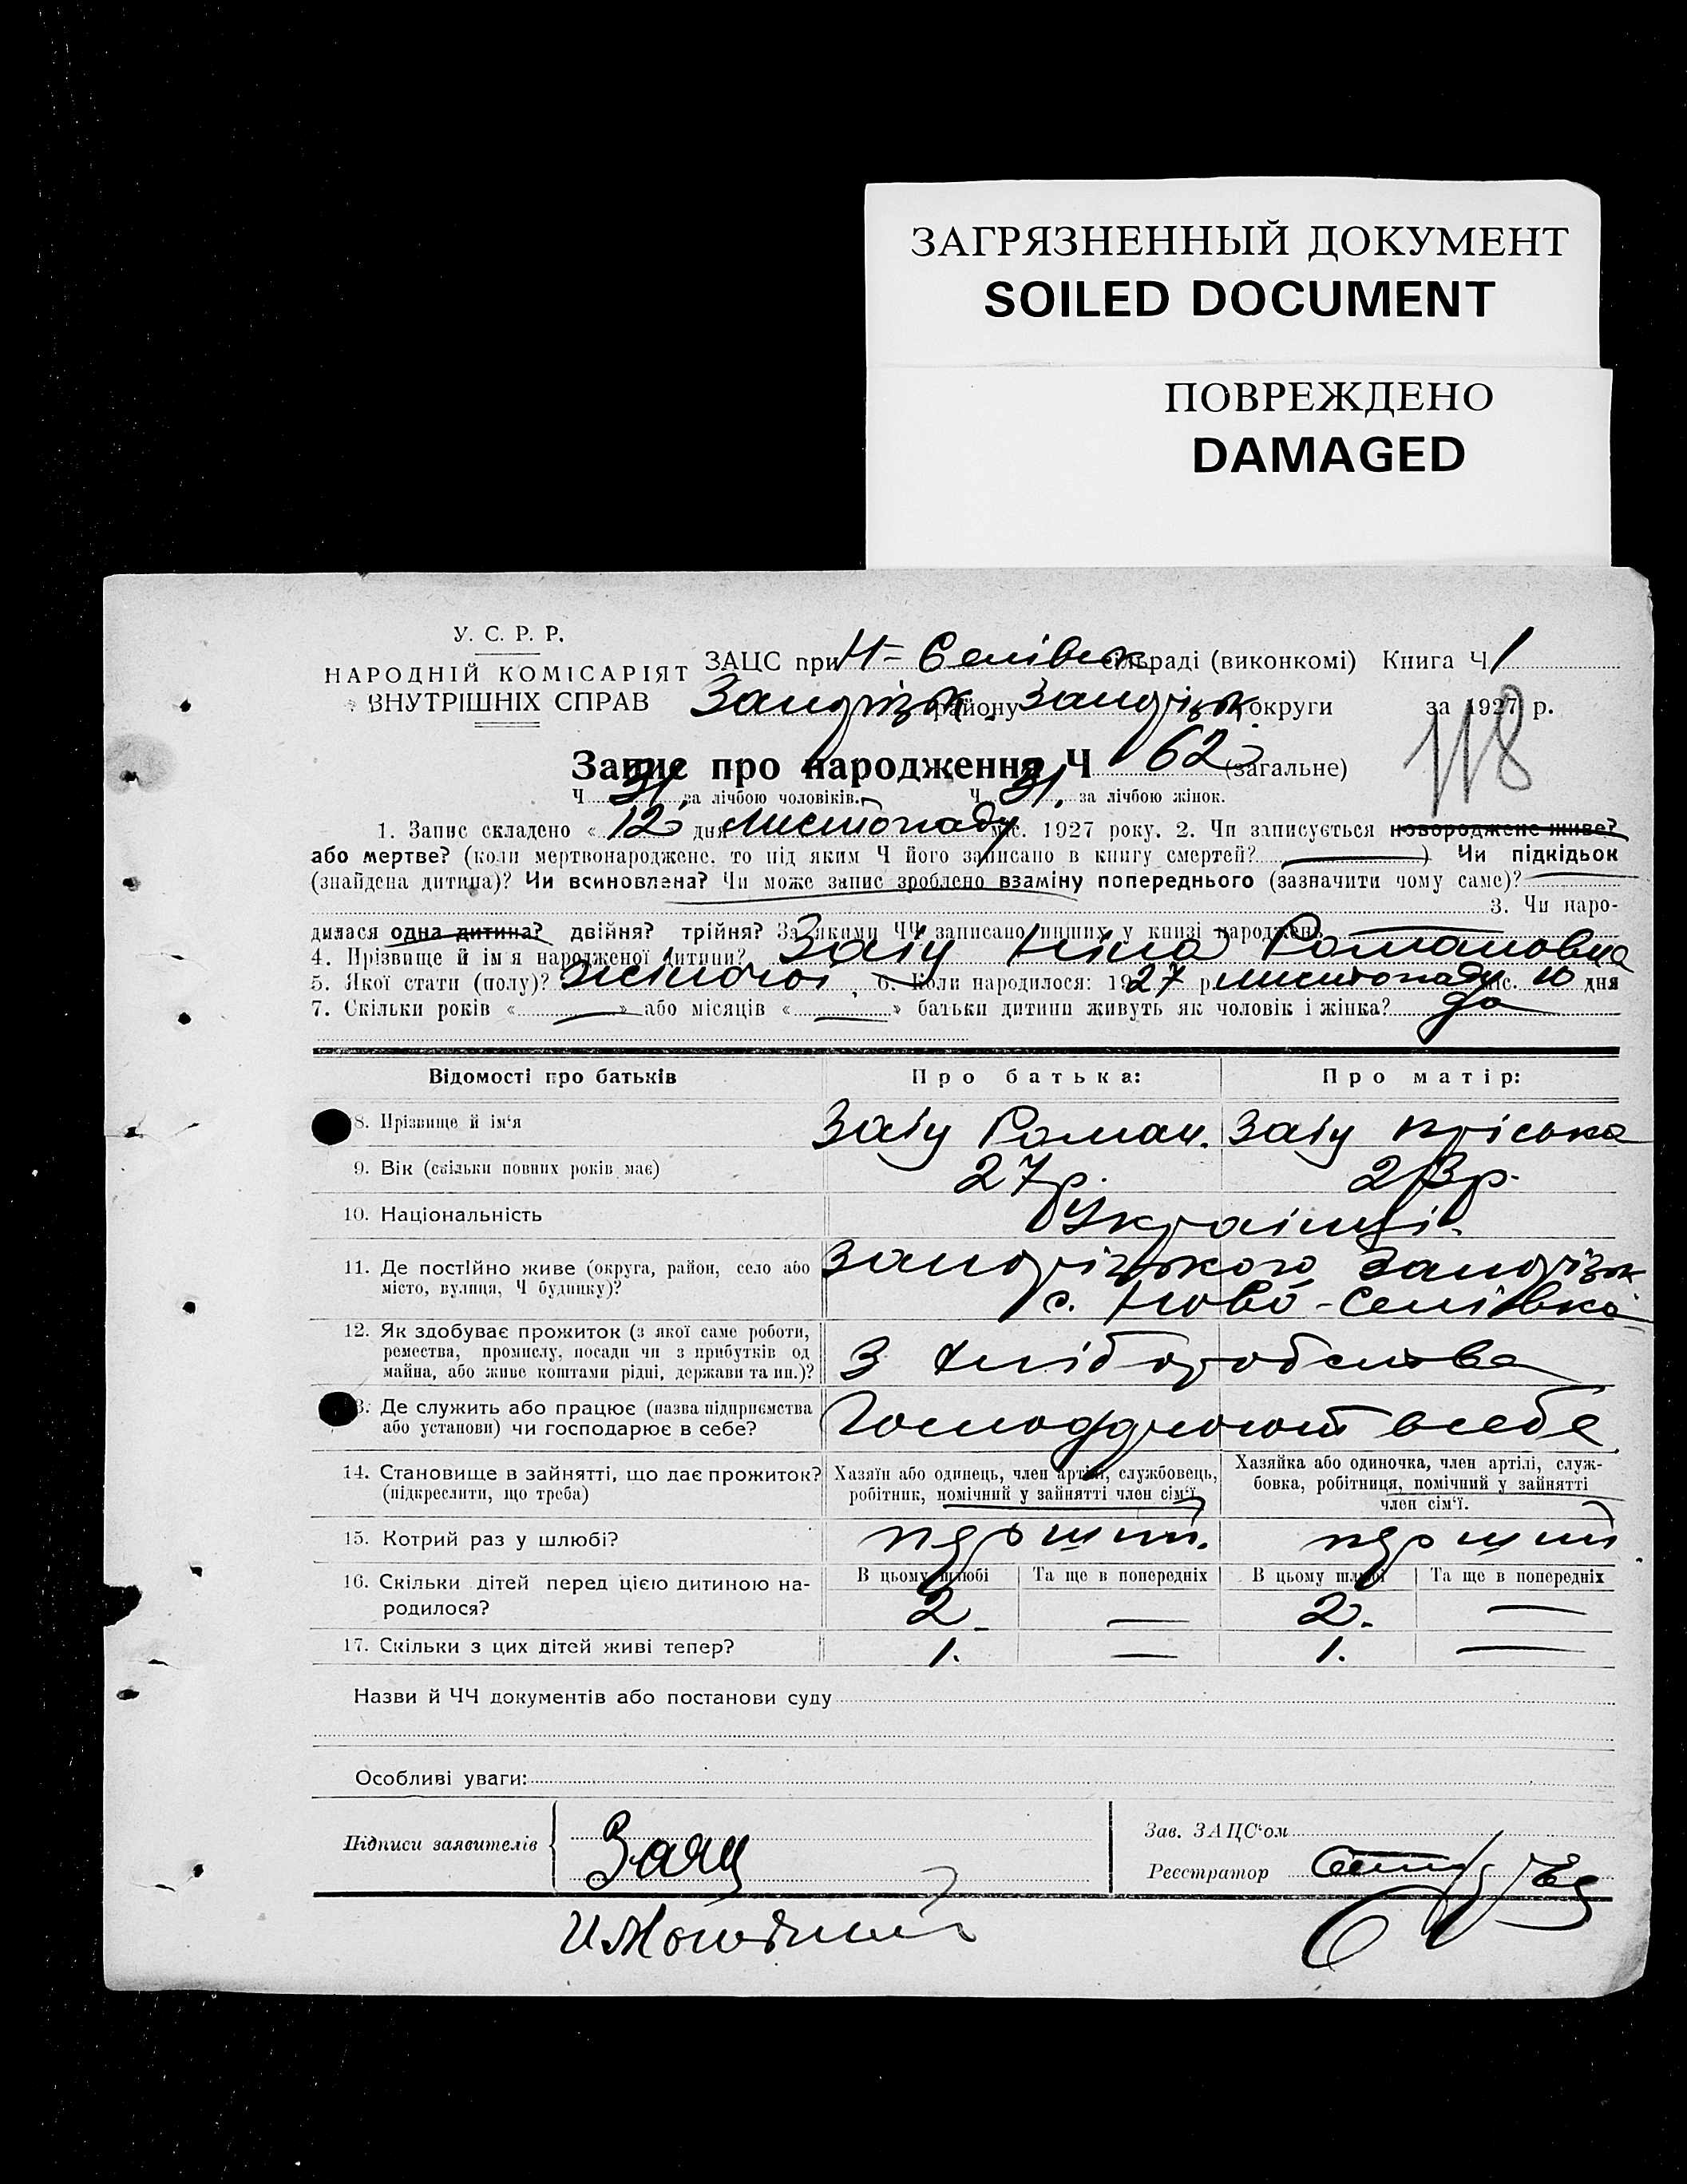 ЗАГРЯЗНЕННЫЙ ДОКУМЕНТ
SOILED DOCUMENT
ПОВРЕЖДЕНО
DAMAGED
У. С. Р. Р.
НАРОДНІЙ КОМІСАРІЯТ
ВНУТРІШНІХ СПРАВ
ЗАЦС при Н-Селівськ сільраді (виконкомі) Книга Ч 1
Запорізьк району Запорізьк округи за 1927 р.
118
Запис про народження Ч 62 (загальне)
Ч 31 за лічбою чоловіків. Ч 31. за лічбою жінок.
1. Запис складено « 12 » дня Листопаду міс. 1927 року. 2. Чи записується новороджене живе?
або мертве? (коли мертвонароджене, то під яким Ч його записано в книгу смертей? ) Чи підкідьок
(знайдена дитина)? Чи всиновлена? Чи може запис зроблено взаміну попереднього (зазначити чому саме)?
3. Чи наро-
дилася одна дитина? двійня? трійня? За якими ЧЧ записано инших у книзі народжень
4. Прізвище й ім'я народженої дитини? Заіц Ніна Романовна
5. Якої стати (полу)? жіночоі, 6. Коли народилося: 1927 р. листопаду міс. 10 дня
7. Скільки років « » або місяців « » батьки дитини живуть як чоловік і жінка? да
Відомості про батьків
Про батька:
Про матір:
8. Прізвище й ім'я
Заіц Роман.
Заіц Пріська
9. Вік (скільки повних років має)
27р.
23р.
10. Національність
Українці.
11. Де постійно живе (округа, район, село або
місто, вулиця, Ч будинку)?
Запорізького Запорізьк
с. Ново-Селівка
12. Як здобуває прожиток (з якої саме роботи,
ремества, промислу, посади чи з прибутків од
майна, або живе коштами рідні, держави та ин.)?
З хліборобства
13. Де служить або працює (назва підприємства
або установи) чи господарює в себе?
всебе
14. Становище в зайнятті, що дає прожиток?
(підкреслити, що треба)
Хазяїн або одинець, член артілі, службовець,
робітник, помічний у зайнятті член сім'ї.
Хазяйка або одиночка, член артілі, служ-
бовка, робітниця, помічний у зайнятті
член сім'ї.
15. Котрий раз у шлюбі?
перший.
перший.
16. Скільки дітей перед цією дитиною на-
родилося?
В цьому шлюбі
Та ще в попередніх
В цьому шлюбі
Та ще в попередніх
2.
2.
17. Скільки з цих дітей живі тепер?
1.
1.
Назви й ЧЧ документів або постанови суду
Особливі уваги:
Підписи заявителів
Заяц
Зав. ЗАЦС'ом
Реєстратор